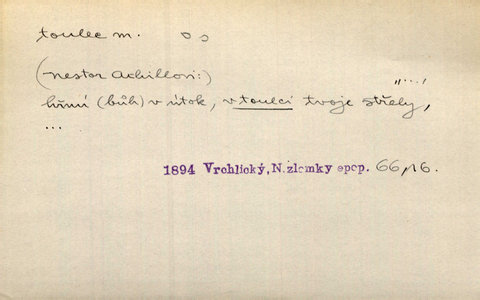 toulec m.
(nestor Achillovi:)
hřmí (bůh) v útok, v toulci tvoje střely,
...
1894 Vrchlický, N. zlomky epop. 66/16.